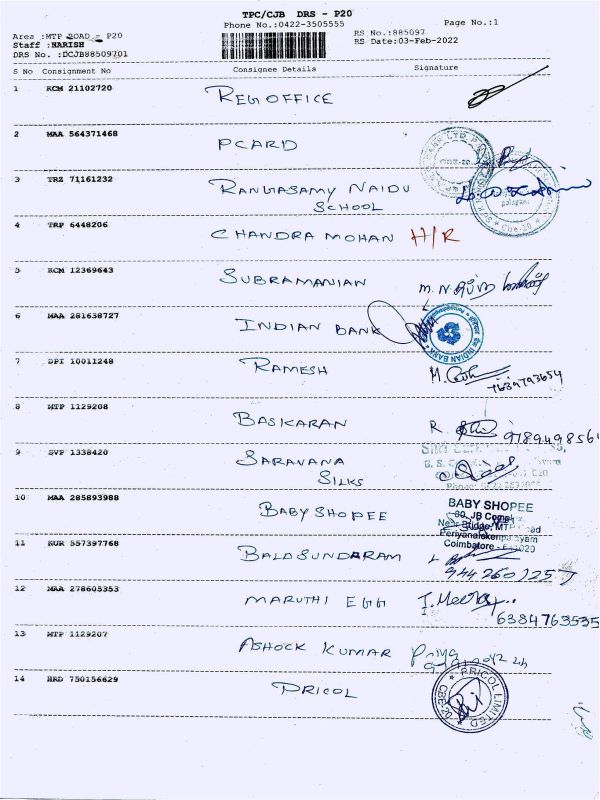 TPC/CJB DRS - P20
Phone No.:0422-3505555
Page No.:1
Area :MTP ROAD - P20
RS No.:885097
Staff :HARISH
RS Date:03-Feb-2022
DRS No. :DCJB88509701
S No Consignment No Consignee Details Signature
1 KCM 21102720 REG OFFICE
2 MAA 564371468 PCARD
3 TRZ 71161232 RANGASAMY NAIDU
SCHOOL
4 TRP 6448206 CHANDRA MOHAN H/R
5 KCM 12369643 SUBRAMANIAN
6 MAA 281638727 INDIAN BANK
INDIAN BANK
7 DPI 10011248 RAMESH
7639793654
8 MTP 1129208 BASKARAN R
9789498564
9 SVP 1338420 SARAVANA
SILKS
10 MAA 285893988 BABY SHOPEE
BABY SHOPEE
80, JB Complex
Near Bridge, MTP Road
Periyanaickenpalayam
Coimbatore - 641020
11 KUR 557397768 BALASUNDARAM
12 MAA 278605353 MARUTHI EGG
6384763535
13 MTP 1129207 ASHOCK KUMAR Priya
14 HRD 750156629 PRICOL
PRICOL LIMITED
CBE-20